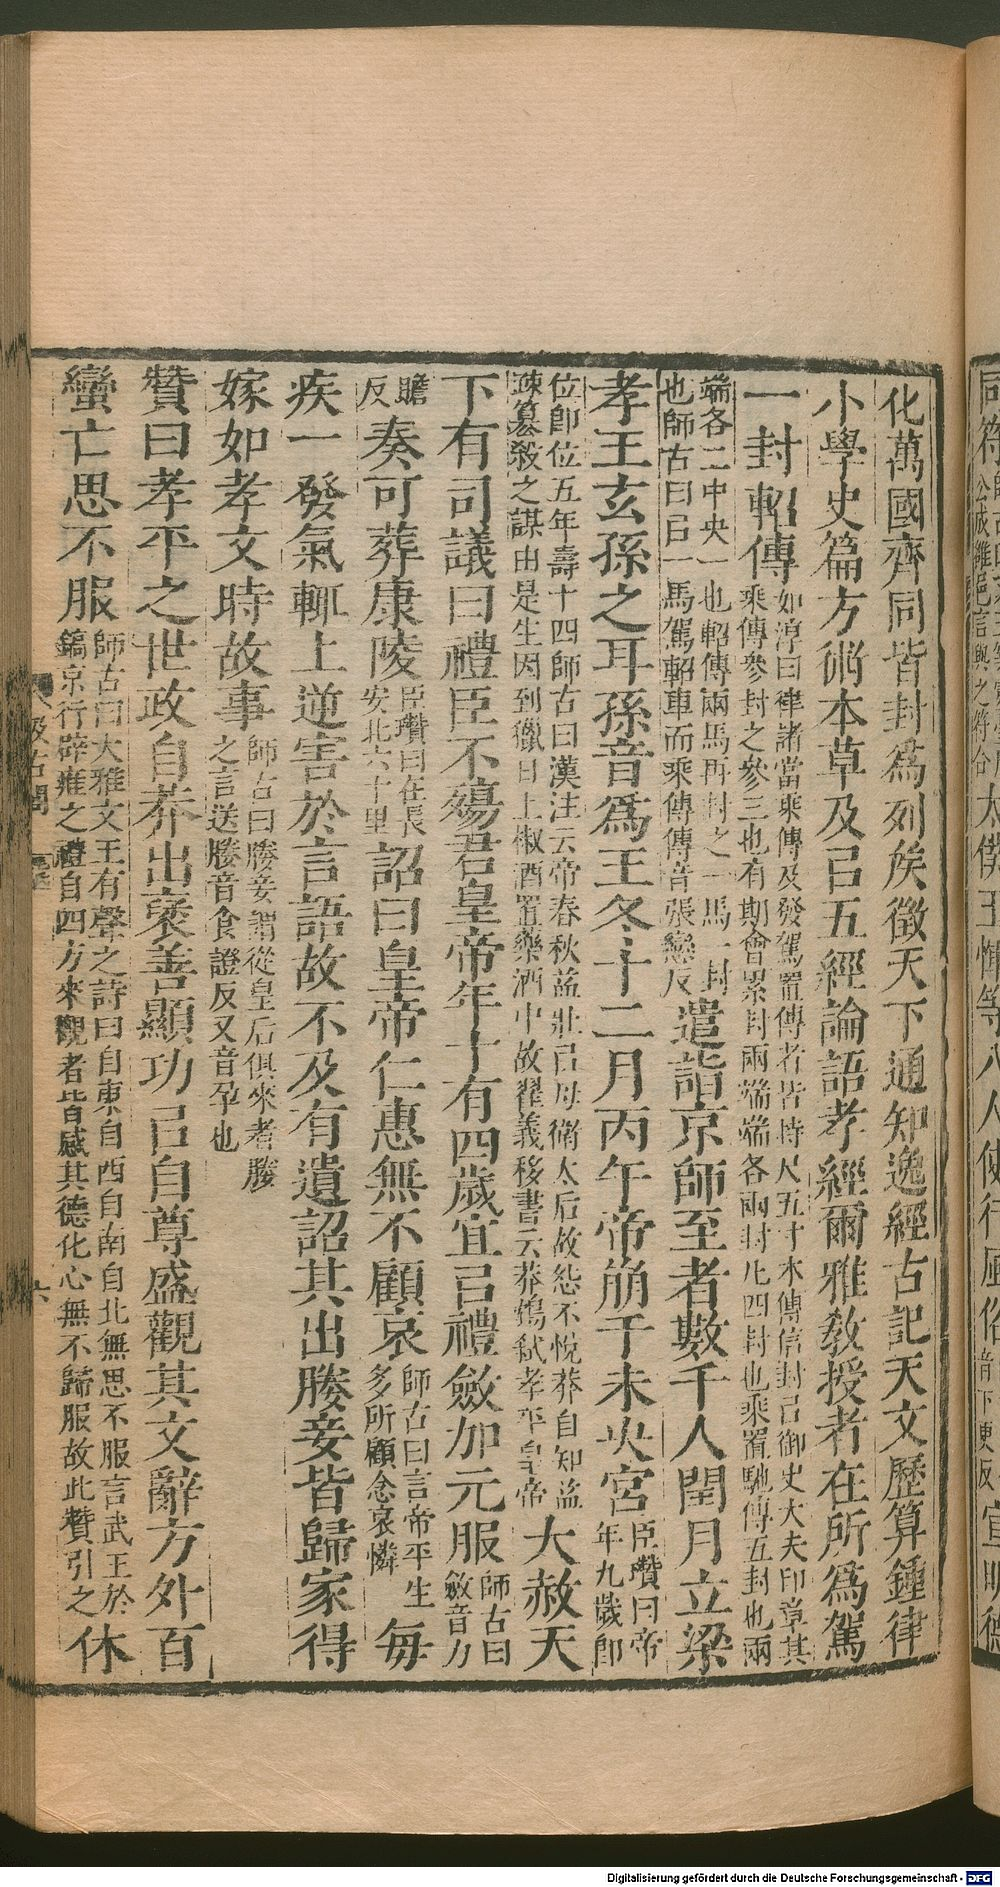 化萬國齊同皆封爲列矦徵天下通知逸經古記天文歷算鍾律
小學史篇方術本草及㠯五經論語孝經爾雅敎授者在所爲駕
一封軺傳如淳曰律諸當乘傳及發駕置傳者皆持尺五寸木傳信封㠯御史大夫印章其
乘傳參封之參三也有期會累封兩端端各兩封凡四封也乘置馳傳五封也兩
端各二中央一也軺傳兩馬再封之一馬一封
也師古曰㠯一馬駕軺車而乘傳傳音張戀反遣詣京師至者數千人閏月立梁
孝王玄孫之耳孫音爲王冬十二月丙午帝崩于未央宮臣瓚曰帝
年九歲卽
位卽位五年壽十四師古曰漢注云帝春秋益壯㠯母衛太后故怨不悅莽自知益
疎篡殺之謀由是生因到臘日上椒酒置藥酒中故翟義移書云莽鴆弑孝平皇帝大赦天
下有司議曰禮臣不殤君皇帝年十有四歲宜㠯禮斂加元服師古曰
斂音力
贍
反奏可葬康陵臣瓚曰在長
安北六十里詔曰皇帝仁惠無不顧哀師古曰言帝平生
多所顧念哀憐每
疾一發氣輒上逆害於言語故不及有遺詔其出媵妾皆歸家得
嫁如孝文時故事師古曰媵妾謂從皇后俱來者媵
之言送媵音食證反又音孕也
贊曰孝平之世政自莽出襃善顯功㠯自尊盛觀其文辭方外百
蠻亡思不服師古曰大雅文王有聲之詩曰自東自西自南自北無思不服言武王於
鎬京行辟雍之禮自四方來觀者皆感其德化心無不歸服故此贊引之休
汲古閣
六
太僕王惲等八人使行風俗
宣明德
Digitalisierung gefördert durch die Deutsche Forschungsgemeinschaft - DFG